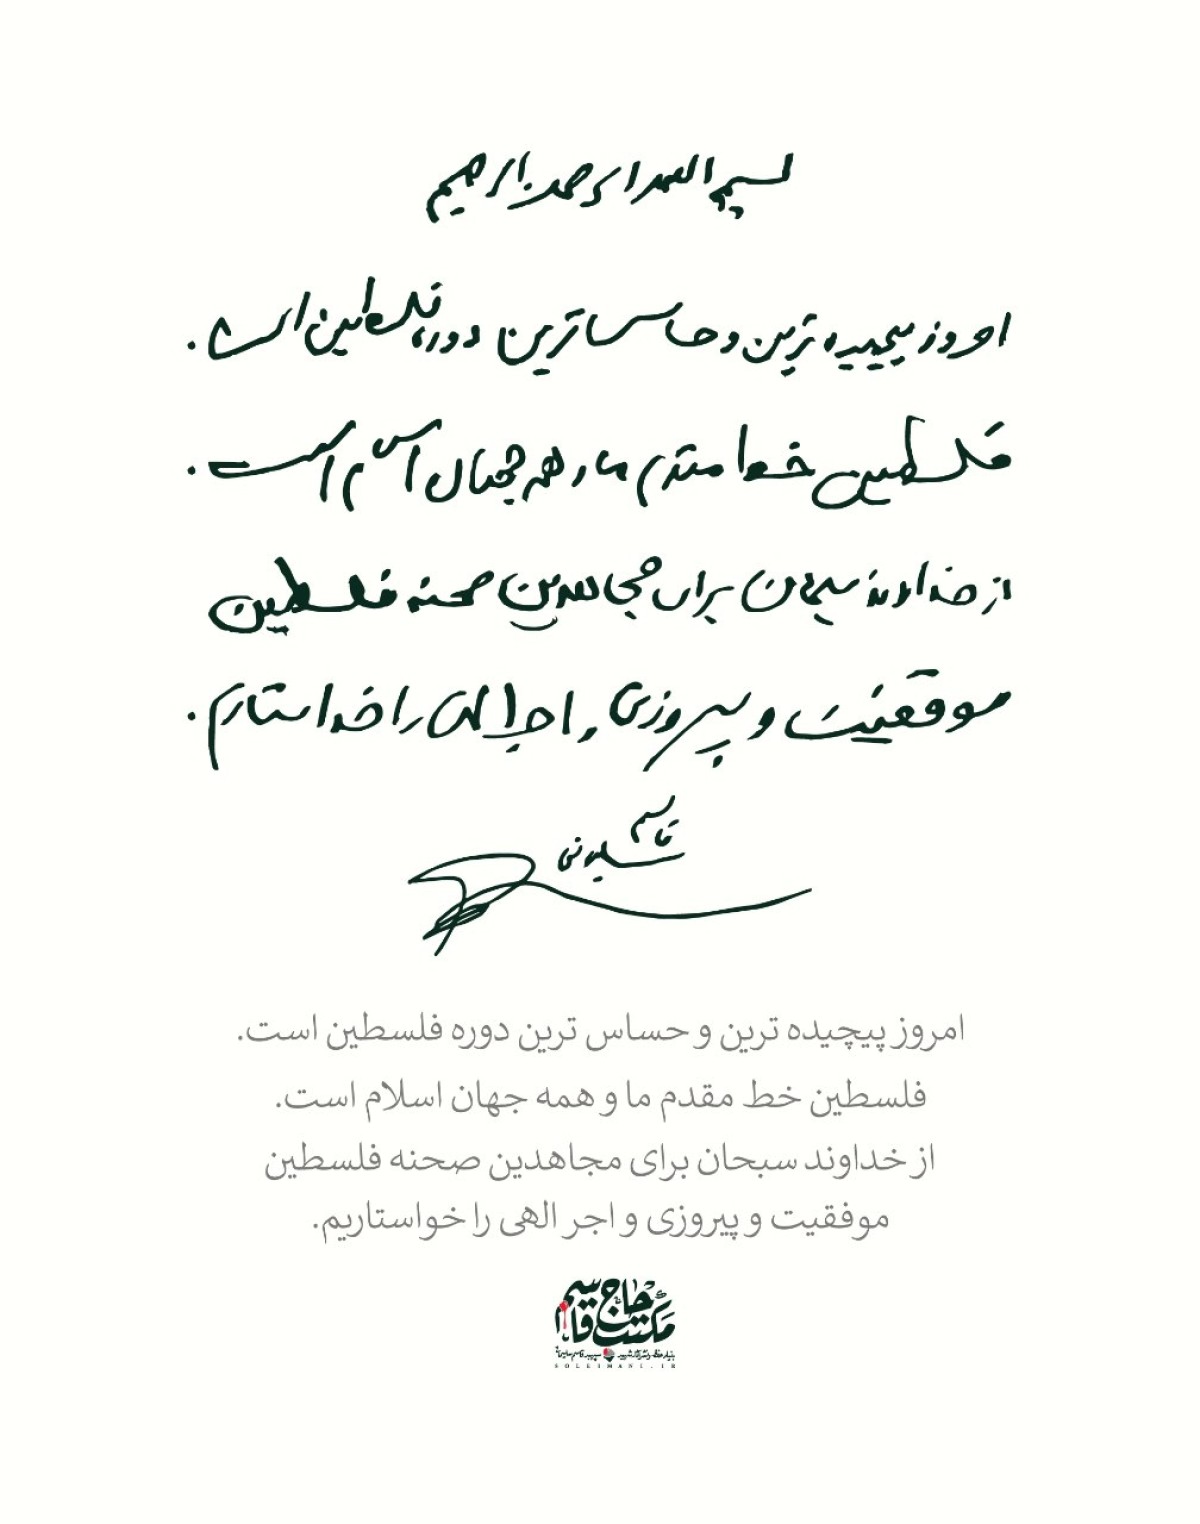 بسم الله الرحمن الرحیم
امروز پیچیده ترین و حساس ترین دوره فلسطین است.
فلسطین خط مقدم ما و همه جهان اسلام است.
از خداوند سبحان برای مجاهدین صحنه فلسطین
موفقیت و پیروزی و اجر الهی را خواستارم.
قاسم
سلیمانی
امروز پیچیده ترین و حساس ترین دوره فلسطین است.
فلسطین خط مقدم ما و همه جهان اسلام است.
از خداوند سبحان برای مجاهدین صحنه فلسطین
موفقیت و پیروزی و اجر الهی را خواستاریم.
مکتب حاج قاسم
بنیاد حفظ و نشر آثار شهید سپهبد قاسم سلیمانی
SOLEIMANI.IR